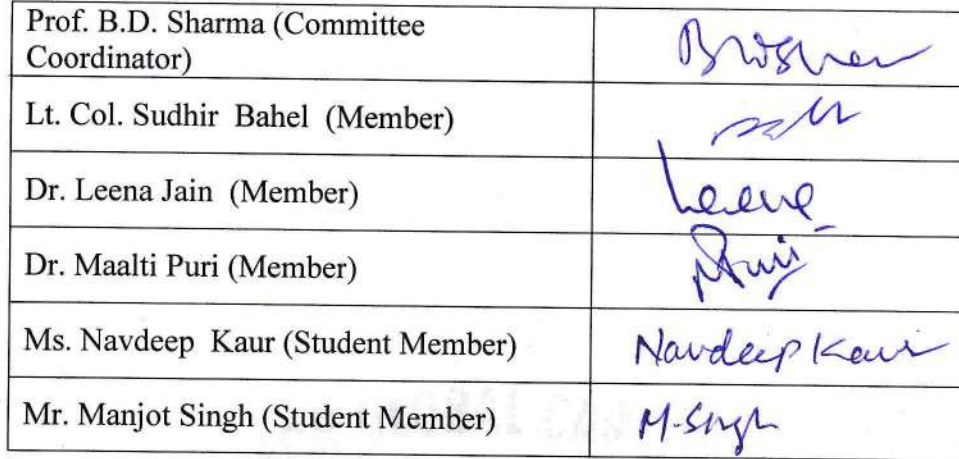 Prof. B.D. Sharma (Committee
Coordinator)
Lt. Col. Sudhir Bahel (Member)
Dr. Leena Jain (Member)
Leena
Dr. Maalti Puri (Member)
MPuri
Ms. Navdeep Kaur (Student Member)
Navdeep Kaur
Mr. Manjot Singh (Student Member)
M-Singh